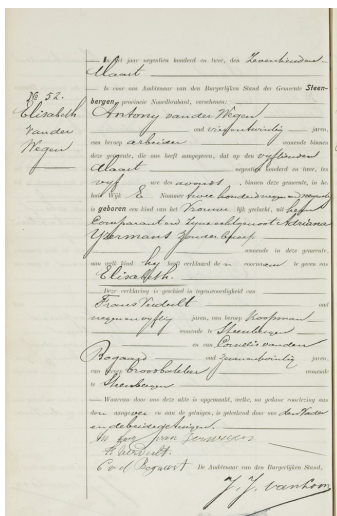 In het jaar negentien honderd en twee, den zeventienden
Maart
is voor ons Ambtenaar van den Burgerlijken Stand der Gemeente Steen-
bergen, provincie Noordbrabant, verschenen:
Nº 52.
Elisabeth
van der
Wegen
Antony van der Wegen
oud vierentwintig jaren,
van beroep arbeider wonende binnen
deze gemeente, die ons heeft aangegeven, dat op den vijftienden
Maart negentienhonderd en twee, ten
vijf ure des avonds, binnen deze gemeente, in het
huis Wijk E Nummer twee honderd negen en negentig
is geboren een kind van het Vrouwelijk geslacht, uit hem
Comparant en zijne echtgenoot Adriana
Ijzermans zonder beroep
wonende in deze gemeente,
aan welk kind hij heeft verklaard de voornaam te geven van
Elisabeth.
Deze verklaring is geschied in tegenwoordigheid van
Frans Verdult oud
negenenvijftig jaren, van beroep Koopman
wonende te Steenbergen
en van Cornelis van den
Bogaard oud zevenentwintig jaren,
van beroep wonende
te Steenbergen
Waarvan door ons deze akte is opgemaakt, welke, na gedane voorlezing aan
den aangever en aan de getuigen, is geteekend door ons den Vader
en de beide getuigen.
F. Verdult
C v d Bogaert
De Ambtenaar van den Burgerlijken Stand,
J. J. van Loon